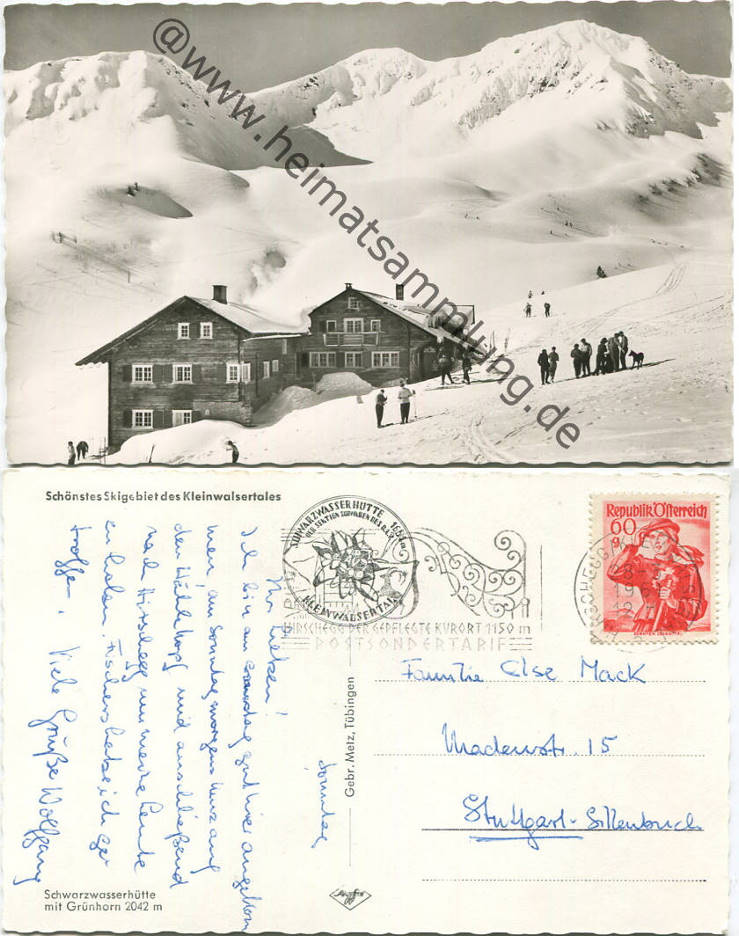 @www.heimatsammlung.de
Schönstes Skigebiet des Kleinwalsertales
SCHWARZWASSERHÜTTE 1651m
DER SEKTION SCHWABEN DES D.A.V.
KLEINWALSERTAL
HIRSCHEGG DER GEPFLEGTE KURORT 1150 m
POSTSONDERTARIF
REPUBLIK ÖSTERREICH
60 g
Sonntag
Ihr Lieben!
Ich bin am Samstag gut hier angekom
men, am Sonntag morgen kurz auf
den Hählekopf und anschließend
nach Hirschegg um meine Leute
zu holen. Fischers habe ich ge
troffen.
Viele Grüße Wolfgang
Gebr. Metz, Tübingen
Familie Else Mack
Madenstr. 15
Stuttgart-Sillenbuch
Schwarzwasserhütte
mit Grünhorn 2042 m